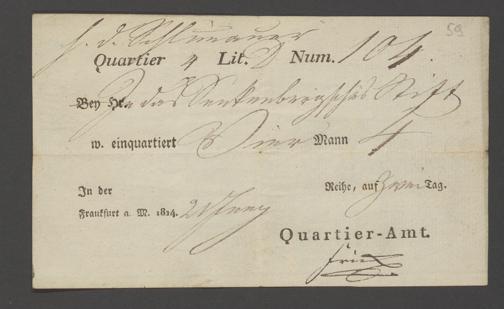 59
Quartier 4 Lit. D Num. 104.
Bey Hr. das Senkenbergische Stift
w. einquartiert Vier Mann 4
In der Reihe, auf zwei Tag.
Frankfurt a. M. 1814. 21
Quartier-Amt.